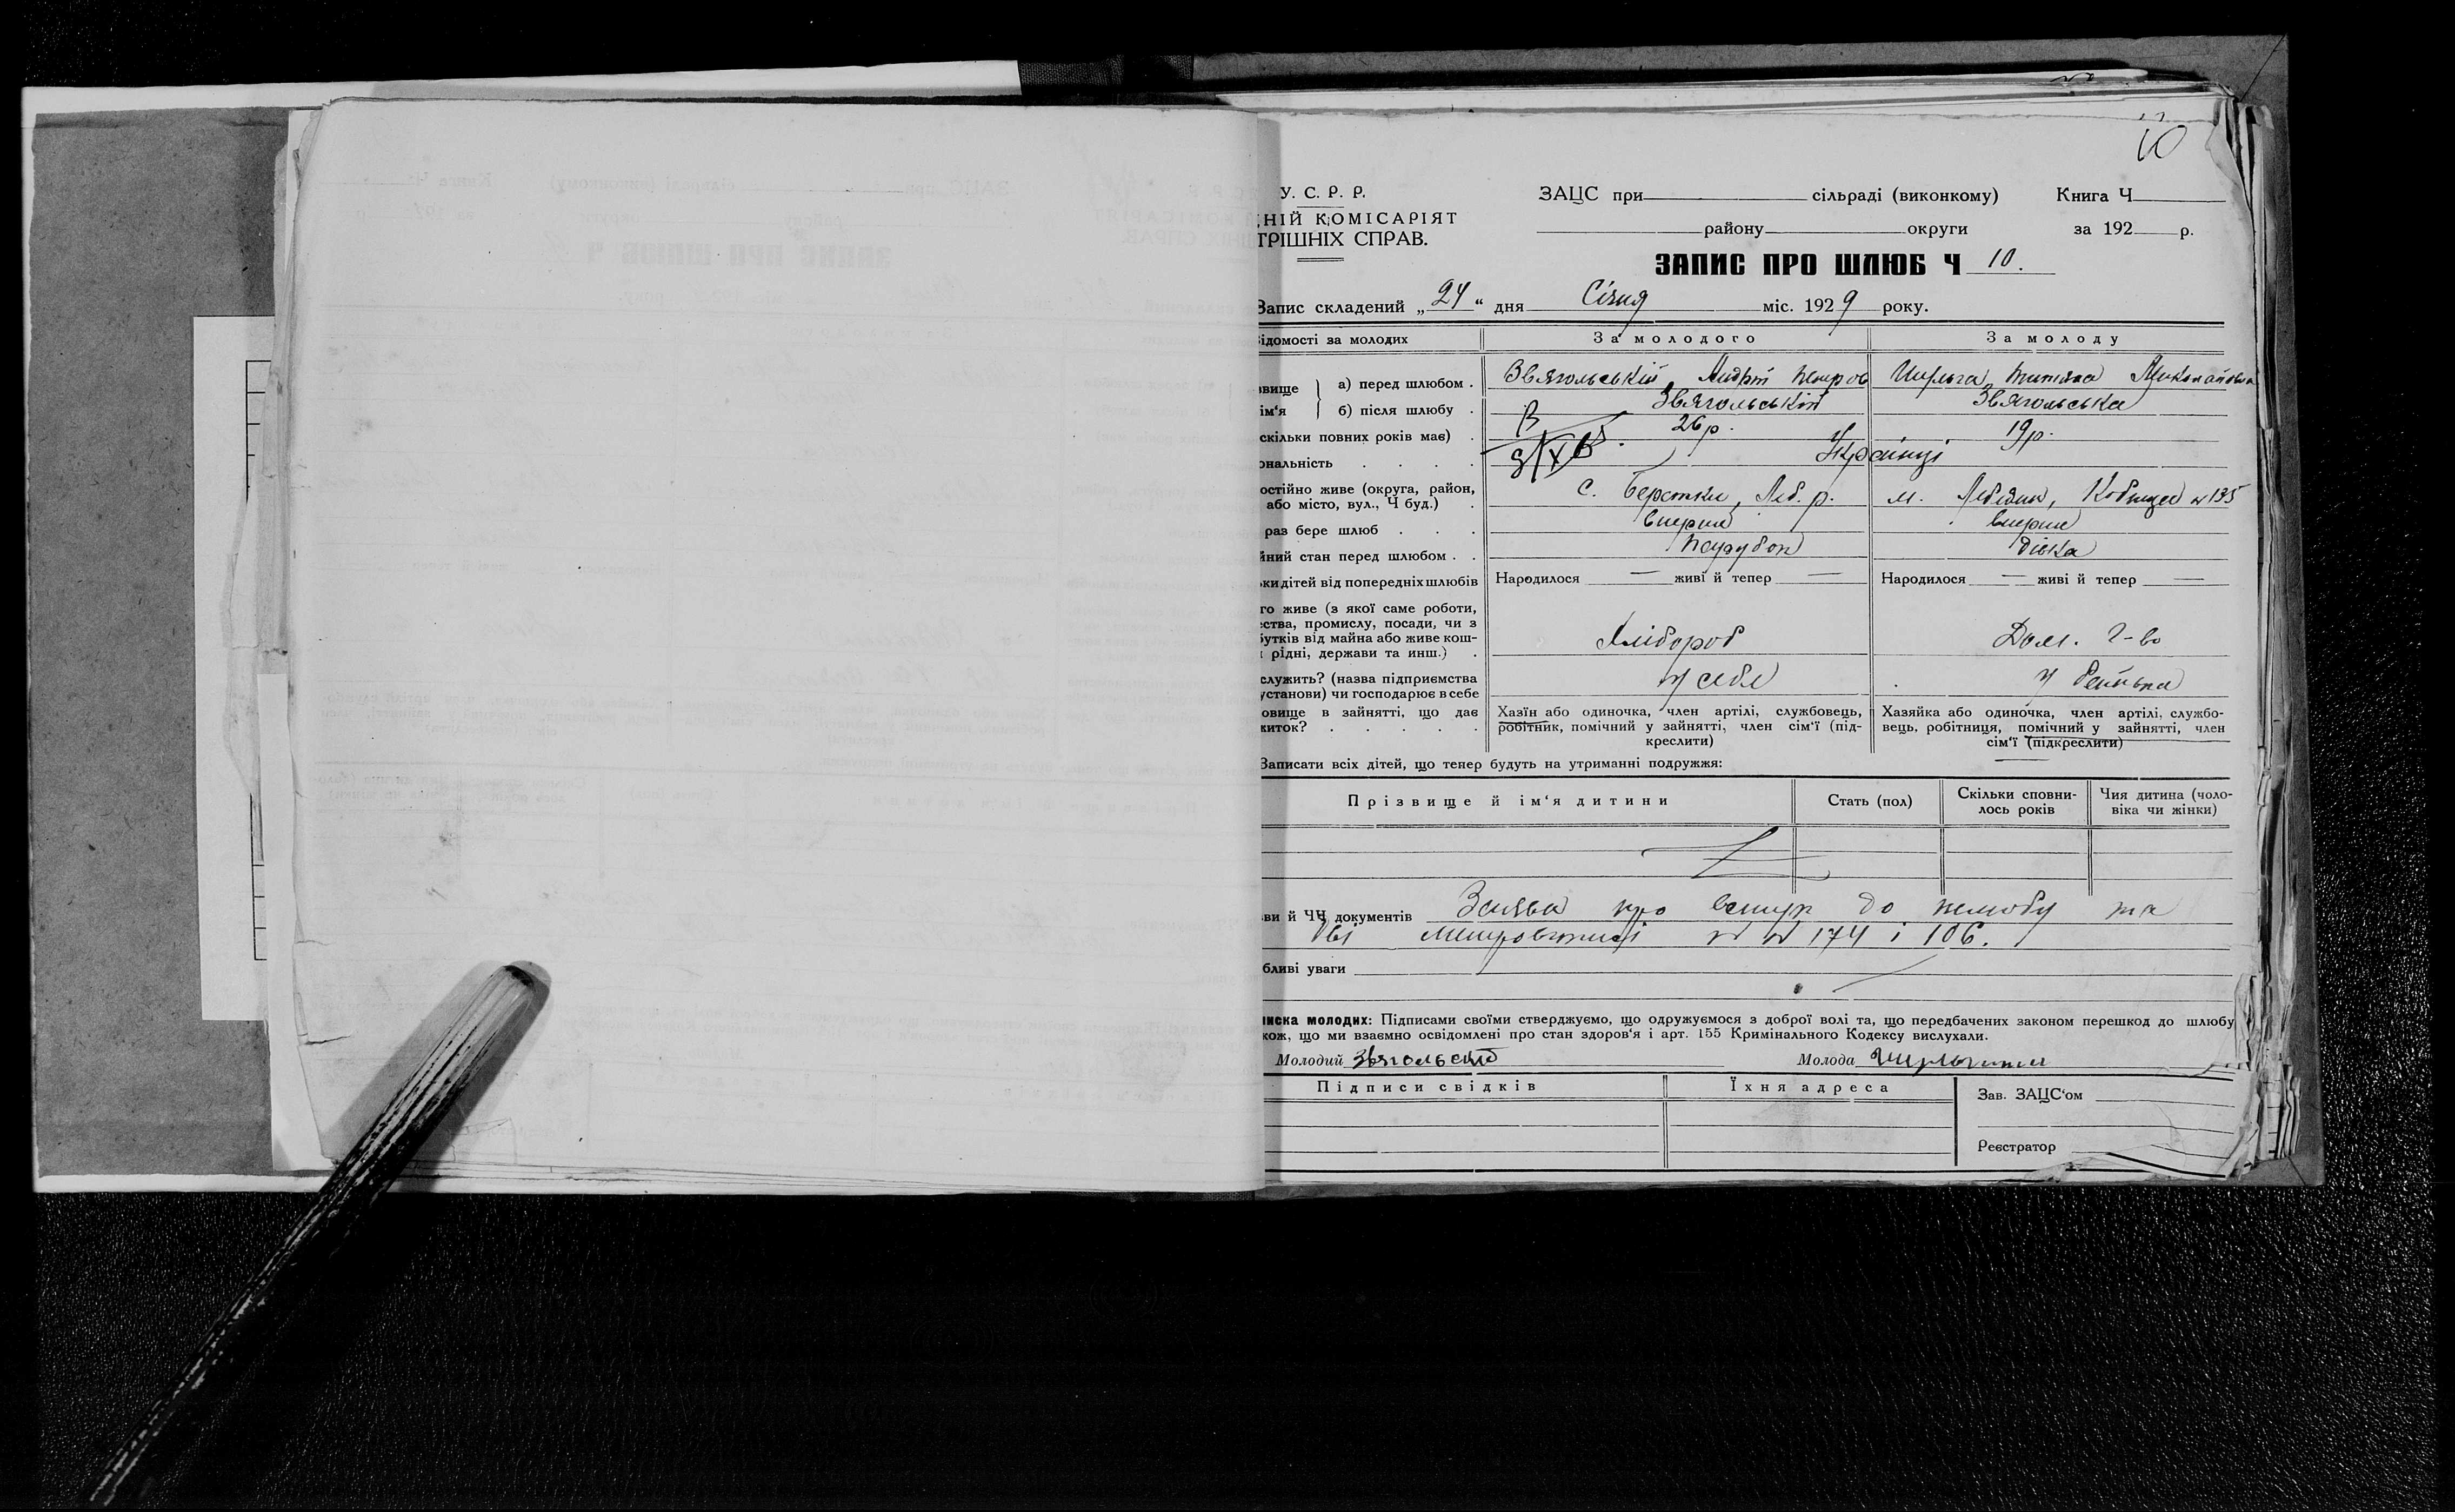 10
У. С. Р. Р.
НІЙ КОМІСАРІЯТ
ТРІШНІХ СПРАВ.
ЗАЦС при сільраді (виконкому) Книга Ч
району округи за 192 р.
ЗАПИС ПРО ШЛЮБ Ч 10.
Запис складений „24“ дня Січня міс. 1929 року.
ідомості за молодих За молодого За молоду
звище а) перед шлюбом . Звягольській Андрій Петров Тетяна Миколаївна
ім‘я б) після шлюбу . Звягольській Звягольська
скільки повних років має) . 26 р. 19 р.
ональність . . . . Українці
остійно живе (округа, район, с. Берестки, Леб. р. м. Лебедин, Кобища № 135
або місто, вул., Ч буд.) .
раз бере шлюб . . . Вперше Вперше
йний стан перед шлюбом . . Парубок Дівка
ки дітей від попередніх шлюбів Народилося — живі й тепер — Народилося — живі й тепер —
го живе (з якої саме роботи,
ства, промислу, посади, чи з
бутків від майна або живе кош-
рідні, держави та инш.) . Хлібороб Дом. г-во
служить? (назва підприємства у себе у батька
установи) чи господарює в себе
овище в зайнятті, що дає Хазїн або одиночка, член артілі, службовець, Хазяйка або одиночка, член артілі, службо-
житок? . . . . . робітник, помічний у зайнятті, член сім‘ї (під- вець, робітниця, помічний у зайнятті, член
креслити) сім‘ї (підкреслити)
Записати всіх дітей, що тепер будуть на утриманні подружжя:
Прізвище й ім‘я дитини Стать (пол) Скільки сповни- Чия дитина (чоло-
лось років віка чи жінки)
ви й ЧЧ документів Заява про вступ до шлюбу та
дві метровиписі № № 174 і 106.
бливі уваги
писка молодих: Підписами своїми стверджуємо, що одружуємося з доброї волі та, що передбачених законом перешкод до шлюбу
кож, що ми взаємно освідомлені про стан здоров‘я і арт. 155 Кримінального Кодексу вислухали.
Молодий Звягольский Молода
Підписи свідків Їхня адреса Зав. ЗАЦС‘ом
Реєстратор